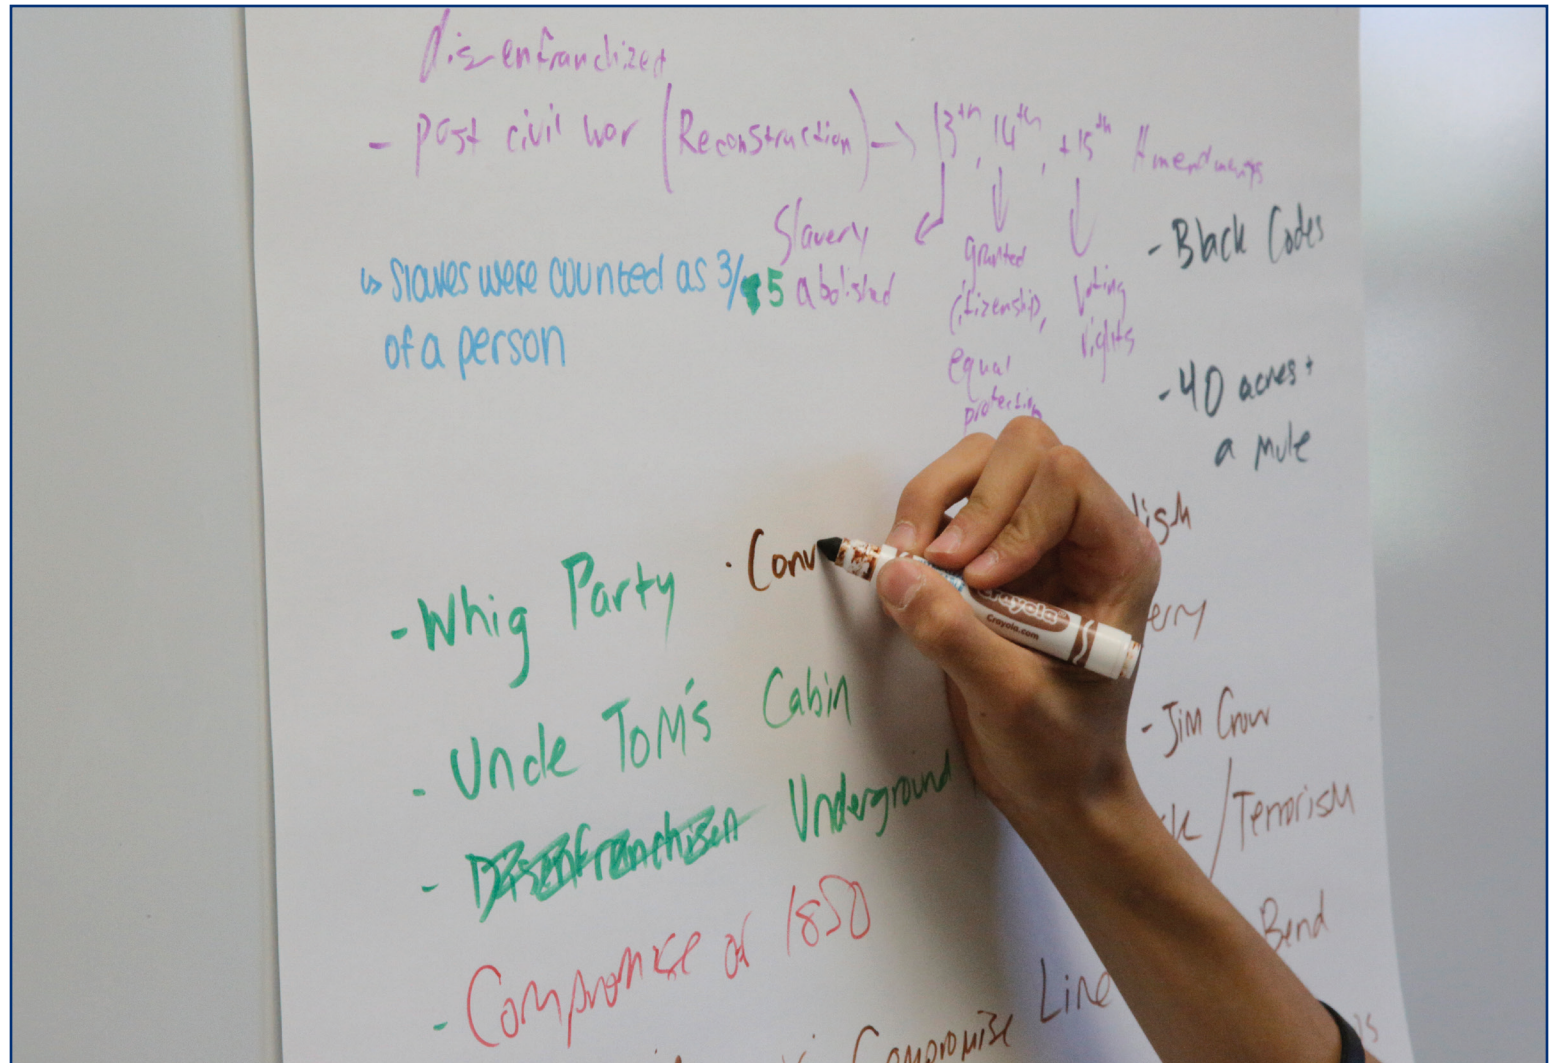 Disenfranchized
- Post civil war (Reconstruction) -> 13th, 14th, +15th Amendments
Slavery
abolished
granted
citizenship,
equal
protection
Voting
rights
- Black Codes
↳ Slaves were counted as 3/5
of a person
- 40 acres +
a mule
- Whig Party
· Conv
Crayola
Crayola.com
- Uncle Tom's Cabin
- Jim Crow
- Disenfranchisen Underground
/Terrorism
- Compromise of 1850
Bend
Compromise Line